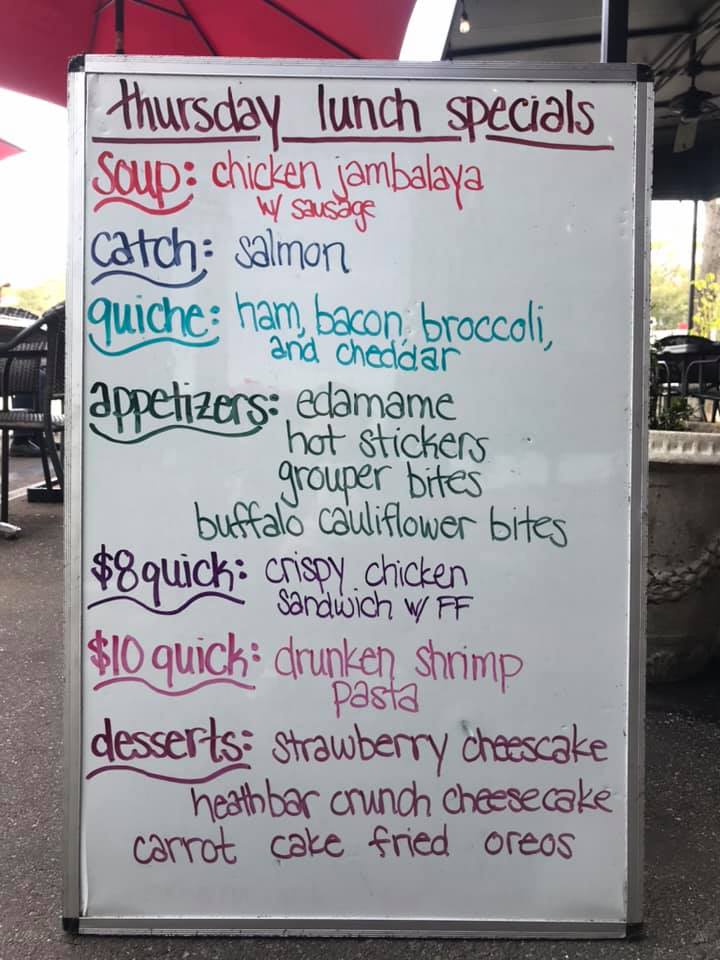 thursday lunch specials
soup: chicken jambalaya
w/ sausage
catch: salmon
quiche: ham, bacon, broccoli,
and cheddar
appetizers: edamame
hot stickers
grouper bites
buffalo cauliflower bites
$8 quick: crispy chicken
sandwich w/ FF
$10 quick: drunken shrimp
pasta
desserts: strawberry cheescake
heathbar crunch cheesecake
carrot cake fried oreos